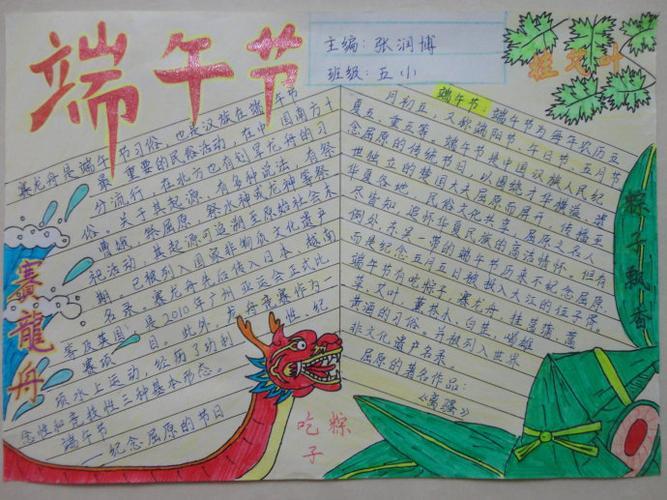 端午节
主编：张润博
班级：五小
挂艾叶
赛龙舟是端午节习俗，也是汉族在端午节
最重要的民俗活动，在中国南方十
分流行，在北方也有划旱龙舟的习
俗。关于其起源，有多种说法，有祭
曹娥，祭屈原，祭水神或龙神等祭
祀活动，其起源可追溯至原始社会末
期。已被列入国家非物质文化遗产
名录。赛龙舟先后传入日本、越南
等及英国，是2010年广州亚运会正式比
赛项目。此外，龙舟竞赛作为一
项水上运动，经历了功利性、纪
念性和竞技性三种基本形态。
端午节
纪念屈原的节日
端午节：端午节为每年农历五
月初五，又称端阳节、午日节、五月节
夏五、重五等。端午节是中国汉族人民纪
念屈原的传统节日，以围绕才华横溢、遗
世独立的楚国大夫屈原而展开，传播至
华夏各地，民俗文化共享，屈原之名人
尽皆知，追怀华夏民族的高洁情怀。但有
例外，东吴一带的端午节历来不纪念屈原，
而是纪念五月五日被投入大江的伍子胥，
端午节有吃粽子，赛龙舟，挂菖蒲、蒿
草、艾叶，薰苍术、白芷，喝雄
黄酒的习俗。并被列入世界
非文化遗产名录。
屈原的著名作品：
《离骚》
赛龍舟
粽子飘香
吃粽子